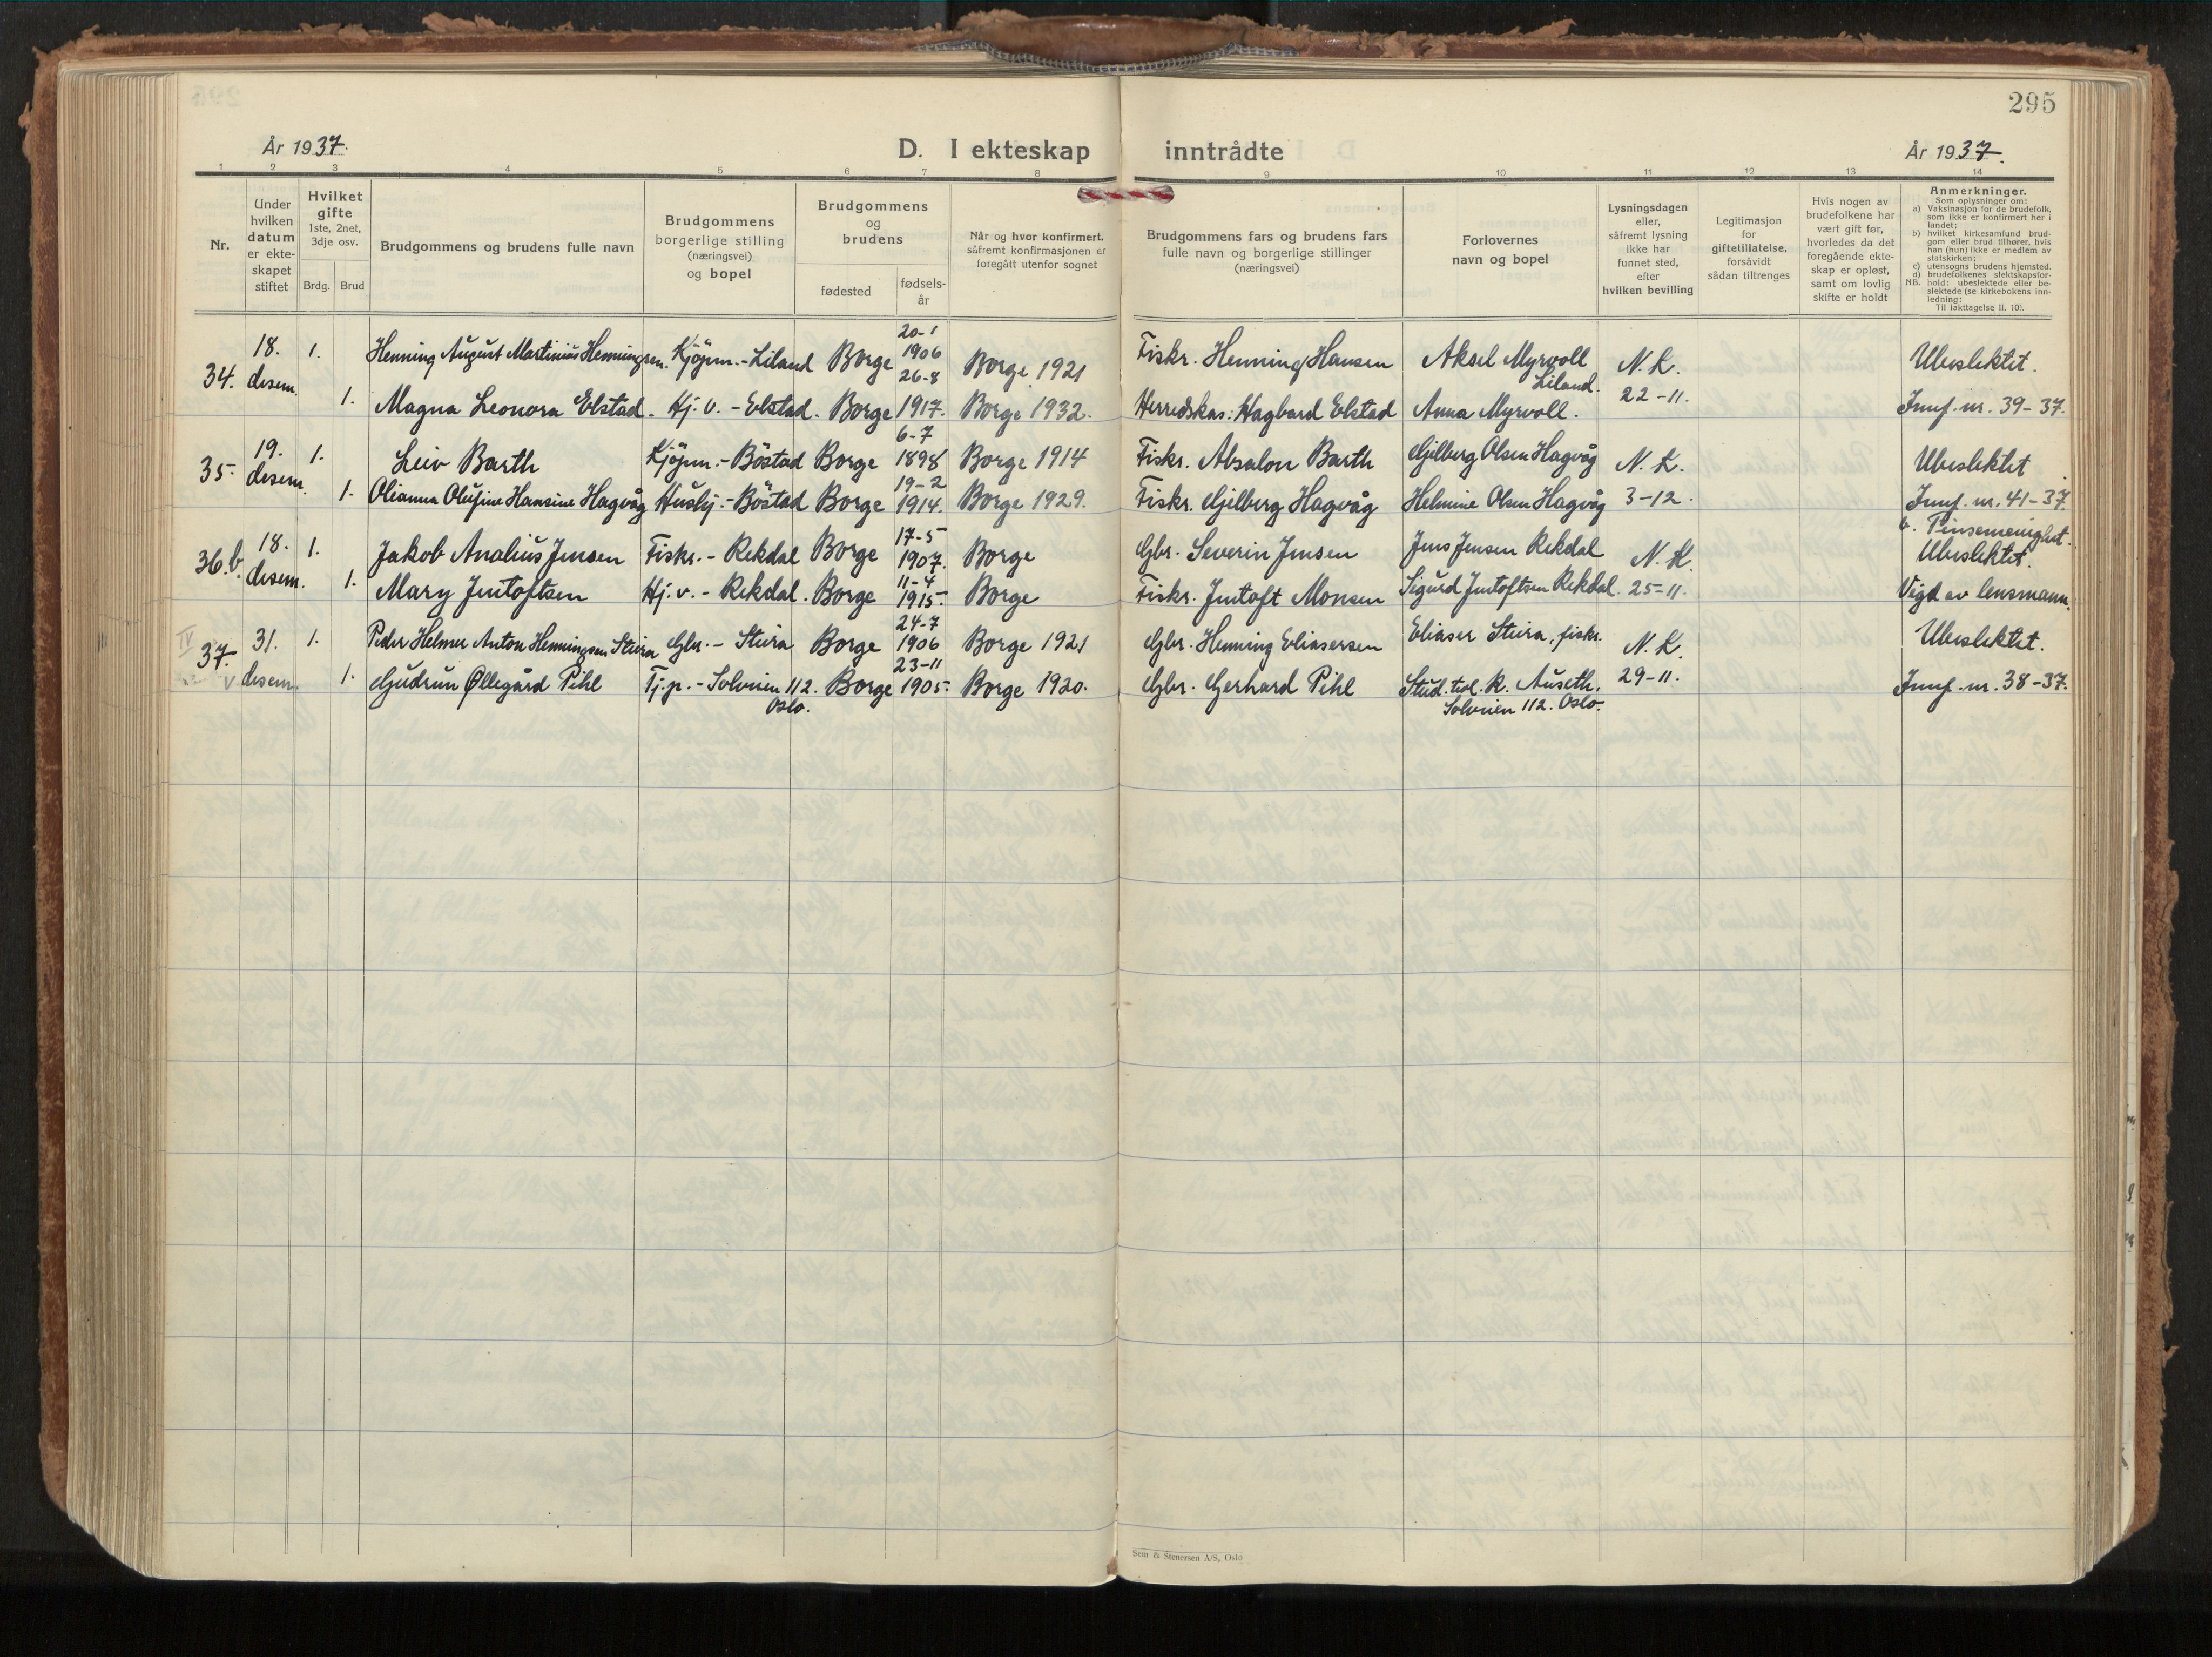 295
År 1937.
D. I ekteskap inntrådte
År 1937.
1 2 3 4 5 6 7 8 9 10 11 12 13 14
Nr.
Under
hvilken
datum
er ekte-
skapet
stiftet
Hvilket
gifte
1ste, 2net,
3dje osv.
Brdg. Brud
Brudgommens og brudens fulle navn
Brudgommens
borgerlige stilling
(næringsvei)
og bopel
Brudgommens
og
brudens
fødested
fødsels-
år
Når og hvor konfirmert,
såfremt konfirmasjonen er
foregått utenfor sognet
Brudgommens fars og brudens fars
fulle navn og borgerlige stillinger
(næringsvei)
Forlovernes
navn og bopel
Lysningsdagen
eller,
såfremt lysning
ikke har
funnet sted,
efter
hvilken bevilling
Legitimasjon
for
giftetillatelse,
forsåvidt
sådan tiltrenges
Hvis nogen av
brudefolkene har
vært gift før,
hvorledes da det
foregående ekte-
skap er opløst,
samt om lovlig
skifte er holdt
Anmerkninger.
Som oplysninger om:
a) Vaksinasjon for de brudefolk,
som ikke er konfirmert her i
landet;
b) hvilket kirkesamfund brud-
gom eller brud tilhører, hvis
han (hun) ikke er medlem av
statskirken;
c) utensogns brudens hjemsted.
d) brudefolkenes slektskapsfor-
hold: ubeslektede eller be-
slektede (se kirkebokens inn-
ledning:
NB.
Til iakttagelse II. 10).
34. 18. desem. 1. Henning August Martinius Henningsen. Kjöpm. - Liland Borge 20-1 1906 Borge 1921 Fiskr. Henning Hansen Aksel Myrvoll Liland. N.K. 22-11. Ubeslektet.
1. Magna Leonora Elstad. Hj.v. - Elstad. Borge 26-8 1917. Borge 1932. Herredskas: Hagbard Elstad Anna Myrvoll. Jmf. nr. 39-37.
35. 19. desem. 1. Leiv Barth Kjöpm. - Böstad Borge 6-7 1898 Borge 1914 Fiskr. Absalon Barth Gjelberg Olsen Hagvåg N.K. 3-12. Ubeslektet.
1. Olianna Olufine Hansine Hagvåg Hushj. - Böstad Borge 19-2 1914. Borge 1929. Fiskr. Gjelberg Hagvåg Helmine Olsen Hagvåg Jmf. nr. 41-37.
36.b. 18. desem. 1. Jakob Analius Jensen Fiskr. - Rekdal Borge 17-5 1907. Borge Gbr. Severin Jensen Jens Jensen Rekdal N.K. 25-11. b. Pinsemenighet. Ubeslektet.
1. Mary Jentoftsen Hj.v. - Rekdal. Borge 11-4 1915. Borge Fiskr. Jentoft Monsen Sigurd Jentoftsen Rekdal. Vigd av lensmann.
IV
37. 31. desem. 1. Peder Helmer Anton Henningsen Steira Gbr. - Steira Borge 24-7 1906 Borge 1921 Gbr. Henning Eliasersen Eliaser Steira, fiskr. N.K. 29-11. Ubeslektet.
v 1. Gudrun Øllegård Pihl Tj.p. - Solveien 112. Oslo. Borge 23-11 1905. Borge 1920. Gbr. Gerhard Pihl Stud. teol. K. Auseth. Solveien 112. Oslo. Jmf. nr. 38-37.
Sem & Stenersen A/S, Oslo